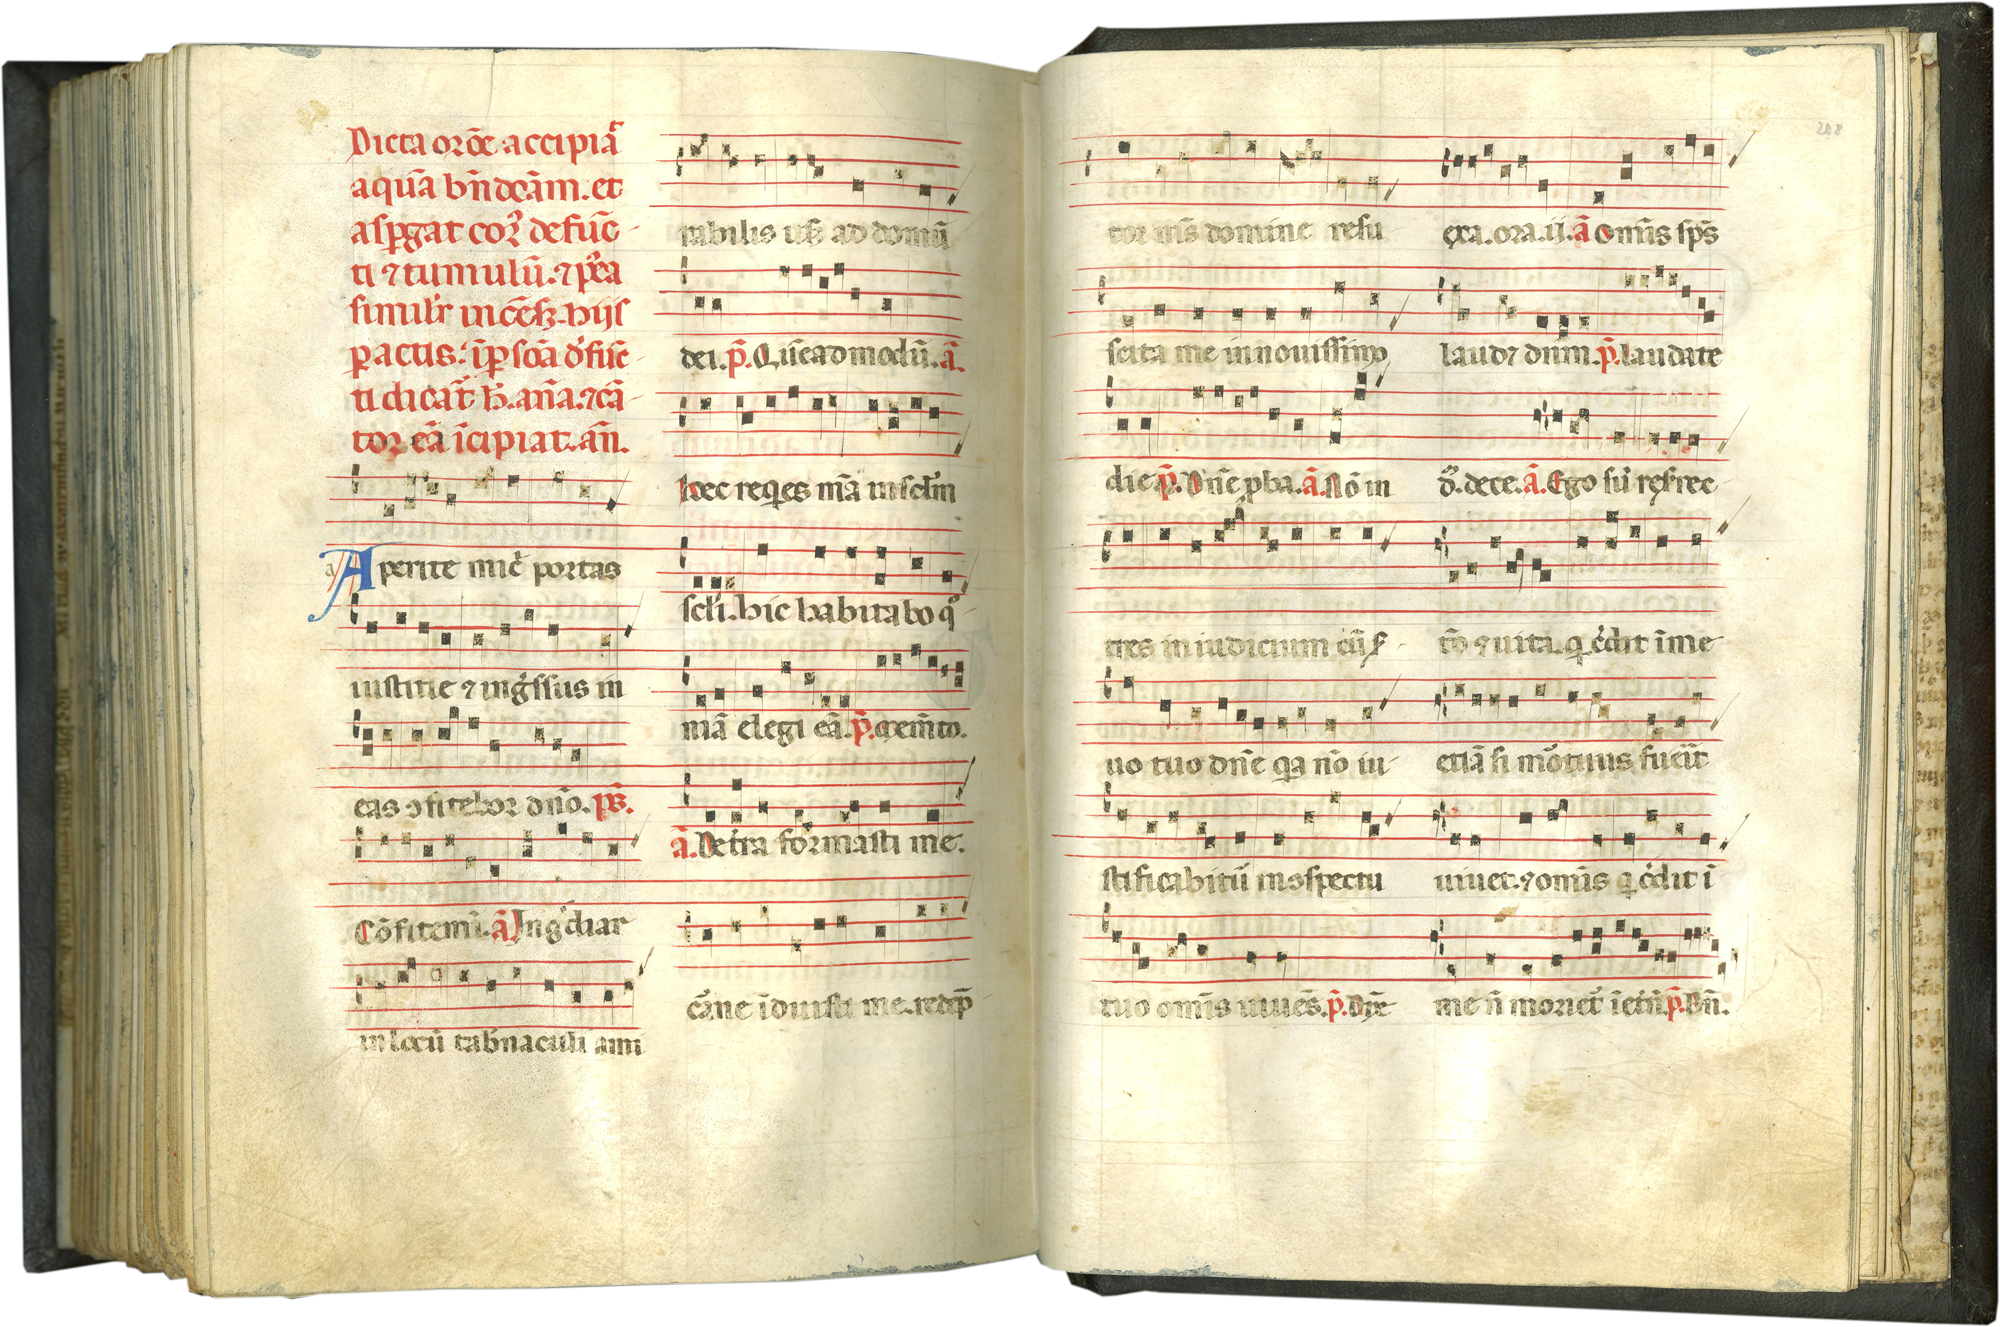 Dicta orōe accipiāt
aquā bn̄dcām. et
asꝑgat corꝰ defūc-
ti ⁊ tumulū. ⁊ p̄ea
simil'r incēset. hijs
ꝑactis.
ti dicat
tor eā īcipiat. an̄.
Aperite mic̄ portas
iustitie ⁊ ingr̄ssus in
eas ↄfitebor dn̄o. ps̄.
Cōfitemī. ā Ingr̄diar
in locū tab̄naculi ami
rabilis usꝫ ad domū
dei. p̄. Quēadmodū. ā.
hec reqes mā in sclm̄
scl'i. hic habitabo qm̄
mā elegi eā. p̄. memto.
ā. De t'ra formasti me.
carne īduisti me. redēp
tor mīs domine resu
scita me in novissimo
die p̄. Dn̄e pba. ā. Nō in
tres in iudicium cū s'-
uo tuo dn̄e qa nō iu-
stificabitū in ↄspectu
tuo omīs uiuēs. p̄. Dn̄e
exa. ora. ij. ā omīs sps̄
laudꝫ dnm̄. p̄. laudate
ā. Ego sū resurrec-
tō ⁊ uita. q c̄dit ī me
etiā si mōtuus fuēit
uiuet. ⁊ omīs q c̄dit ī
me n̄ moriet' ī etn̄. p̄. Bn̄.
208